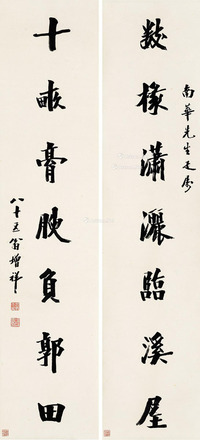 南華先生
數椽瀟灑臨溪屋
十畝膏腴負郭田
八十五翁增祥